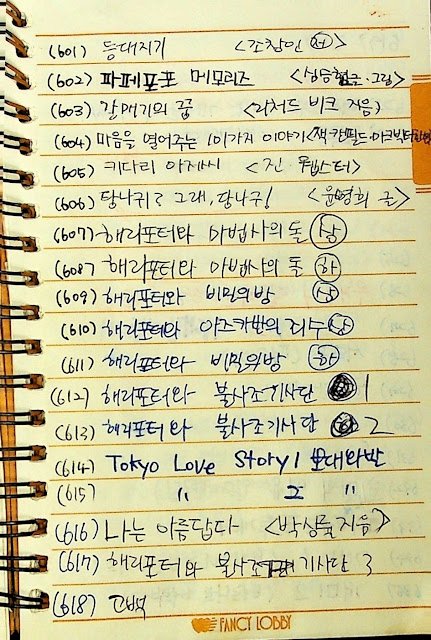 (601) 등대지기 <조창인 저>
(602) 파페포포 메모리즈 <심승현 글·그림>
(603) 갈매기의 꿈 <리처드 바크 지음>
(604) 마음을 열어주는 101가지 이야기 <잭 캔필드·마크 빅터
(605) 키다리 아저씨 <진·웹스터>
(606) 당나귀? 그래, 당나귀! <윤영희 글>
(607) 해리포터와 마법사의 돌 상
(608) 해리포터와 마법사의 돌 하
(609) 해리포터와 비밀의방 상
(610) 해리포터와 아즈카반의 죄수 상
(611) 해리포터와 비밀의방 하
(612) 해리포터와 불사조기사단 1
(613) 해리포터와 불사조기사단 2
(614) Tokyo Love Story 1
(615) " 2 "
(616) 나는 아름답다 <박상률 지음>
(617) 해리포터와 불사조 기사단 3
(618) 고백
FANCY LOBBY